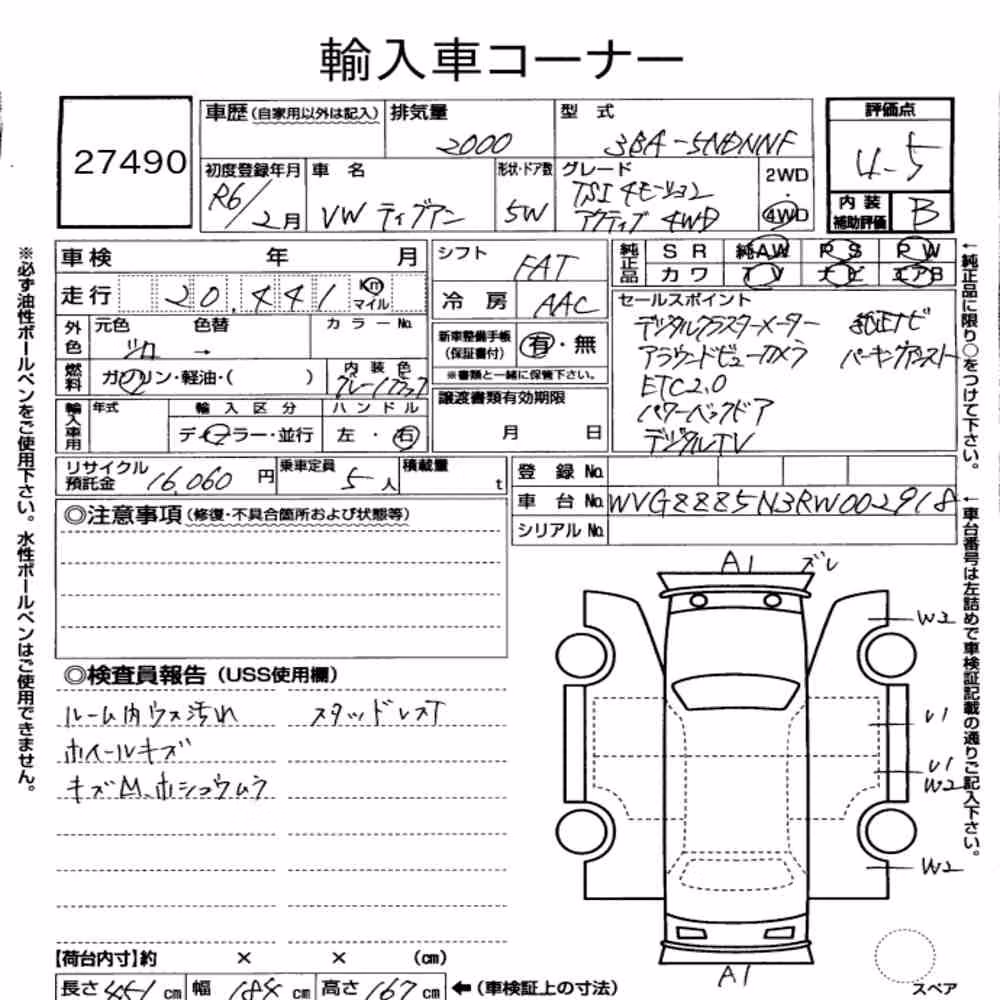 輸入車コーナー
27490
車歴(自家用以外は記入) 排気量 2000 型 式 3BA-5NDNNF
初度登録年月 R6/2月 車 名 VW ティグアン 形状・ドア数 5W
グレード TSI 4モーション アクティブ 4WD
2WD ・ 4WD
評価点 4-5
内 装 補助評価 B
車検 年 月
走行 20,441 Km マイル
外色 元色 色替 → カラーNo.
燃料 ガソリン・軽油・( ) 内装色 グレー/ブラック
輸入車用 年式 輸入区分 ハンドル
ディーラー・並行 左・右
シフト FAT
冷 房 AAC
新車整備手帳 (保証書付) 有・無
※書類と一緒に保管下さい。
譲渡書類有効期限
月 日
純正品 SR 純AW PS PW
カワ TV ナビ エアB
セールスポイント
デジタルクラスターメーター 純正ナビ
アラウンドビューカメラ パーキングアシスト
ETC2.0
パワーバックドア
デジタルTV
リサイクル預託金 16,060 円 乗車定員 5人 積載量 t
登 録 No.
車 台 No. WVGZZZ5N3RW002918
シリアル No.
◎注意事項(修復・不具合箇所および状態等)
◎検査員報告(USS使用欄)
ルーム内ウス汚れ スタッドレスT
ホイールキズ
キズM、ホシュウムラ
A1 ズレ
W2
U1
U1
W2
W2
A1
スペア
【荷台内寸】約 × × (cm)
長さ 451 cm 幅 184 cm 高さ 167 cm ←(車検証上の寸法)
※必ず油性ボールペンをご使用下さい。水性ボールペンはご使用できません。
←純正品に限り○をつけて下さい。
←車台番号は左詰めで車検証記載の通りご記入下さい。